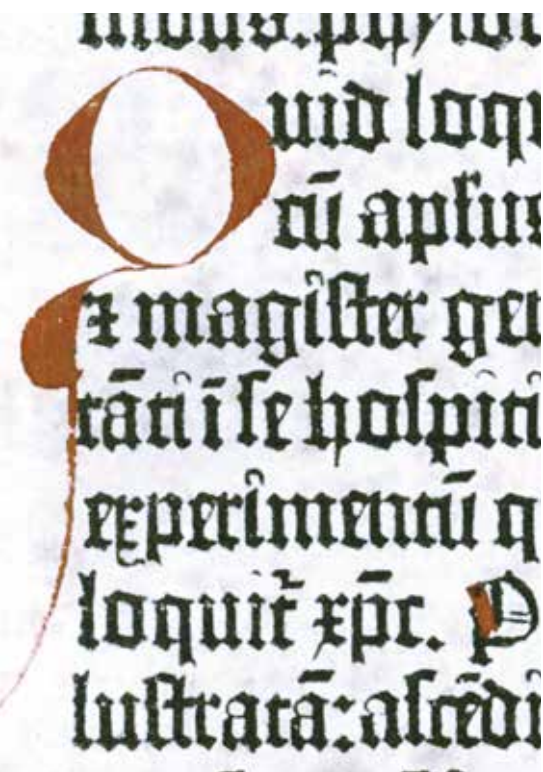 Quid loqu
cū apl'us
⁊ magister gen
tāti ī se hospiti
experimentū q
loquit̄ xp̄c. P
lustratā: ascēdi